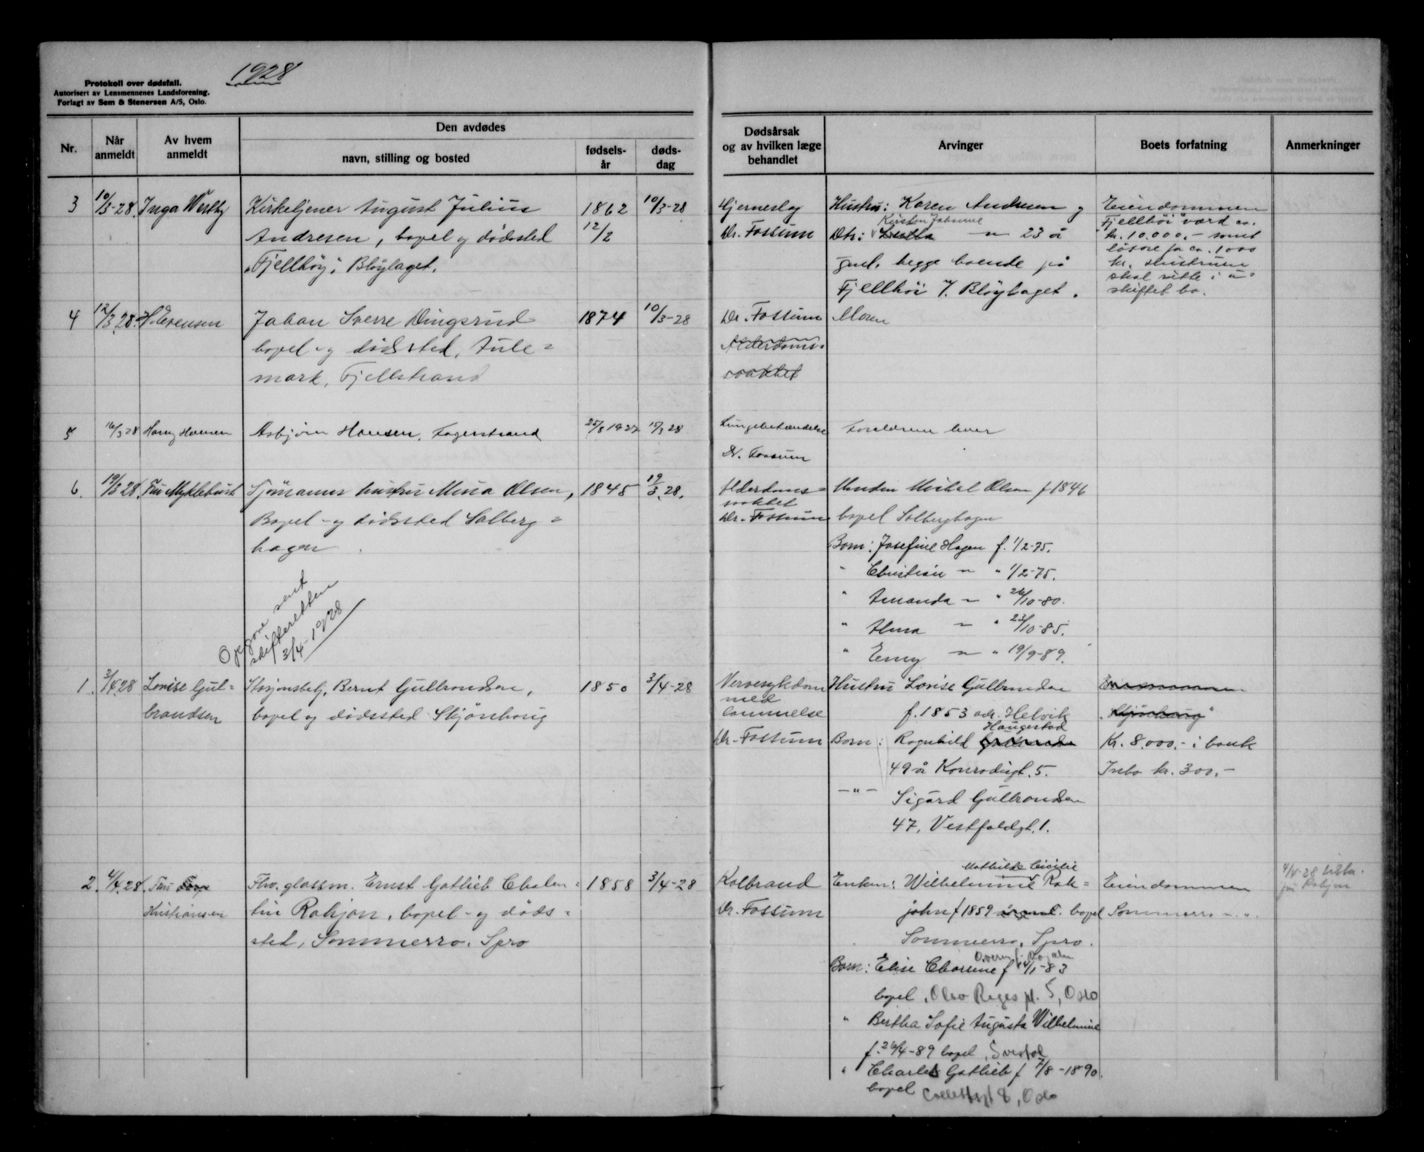 1928
Protokoll over dødsfall.
Autorisert av Lensmennenes Landsforening.
Forlagt av Sem & Stenersen A/S, Oslo.
Nr.
Når anmeldt
Av hvem anmeldt
Den avdødes
navn, stilling og bosted
fødsels-år
døds-dag
Dødsårsak og av hvilken læge behandlet
Arvinger
Boets forfatning
Anmerkninger
3 10/3-28 Inga Westby Kirketjener August Julius 1862 10/3-28 Hjerneslag Hustru: Karen Andresen og Eiendommen
Andresen, bopel og dødssted 12/2 Dr. Fossum Dtr: Kirsten Johanne 23 år Fjellhöi værd ca.
"Fjellhöy" i Bløylaget. kr. 10.000,- samt
løsøre for ca. 1000
gml. begge boende på kr. Hustruen
Fjellhöi i Bløylaget. skal sitte i u-
skiftet bo.
4 12/3 28 Johan Sverre Dingsrud 1874 10/3-28 Dr. Fossum Moren
bopel og dødssted, Tule- Alderdoms-
mark, Fjellstrand svakhet
5 16/3 28 Harry Hansen Asbjörn Hansen, Fagerstrand 25/8 1927 28 Lungebetændelse Foreldrene lever
Dr. Fossum
6 19/3 28 Fru Myklebust Sjømanns hustru Mina Olsen, 1845 19/3 28. Alderdoms-svakhet Manden Olsen f 1846
Bopel og dødssted Solberg- Dr. Fossum bopel Solberghagen
hagen
Barn: Josefine Hagen f. 1/2-75.
" Christian " " 1/2-75.
" Amanda " " 26/10-80.
" Alma " " 23/10-85.
" Emy " " 19/9-89.
Opgave sent
skifteretten
3/4-1928
1. 3/4 28 Lovise Gul- Bernt Gulbrandsen, 1850 3/4-28 Nervesykdom Hustru Lovise Gulbrandsen
brandsen bopel og dødssted Skjönhaug med lammelse f. 1853 Helvik "Skjønhaug"
Dr. Fossum Barn: Ragnhild Haugestad Kr. 8.000.- i bank
49 år Konradigt. 5. Inbo kr. 300,-
-"- Sigurd Gulbrandsen
47, Vestfoldgt. 1.
2. 4/4 28 Fru Fhv. glassm. Ernst Gotlieb Chalen- 1858 3/4-28 Kolbrand Enken: Mathilde Cicilie Wilhelmine Rok- Eiendommen
Kristiansen tin Rokjon, bopel og døds- Dr. Fossum john f 1859 bopel Sommerro
sted, Sommerro, Spro Sommerro, Spro.
4/4-28
Barn: Elise Charsine f 4/1-83
bopel, Oslo
" Bertha Sofie Augusta Wilhelmine
f. 26/4-89 bopel,
" Charles Gotlieb f 7/8-1890.
bopel 8, Oslo